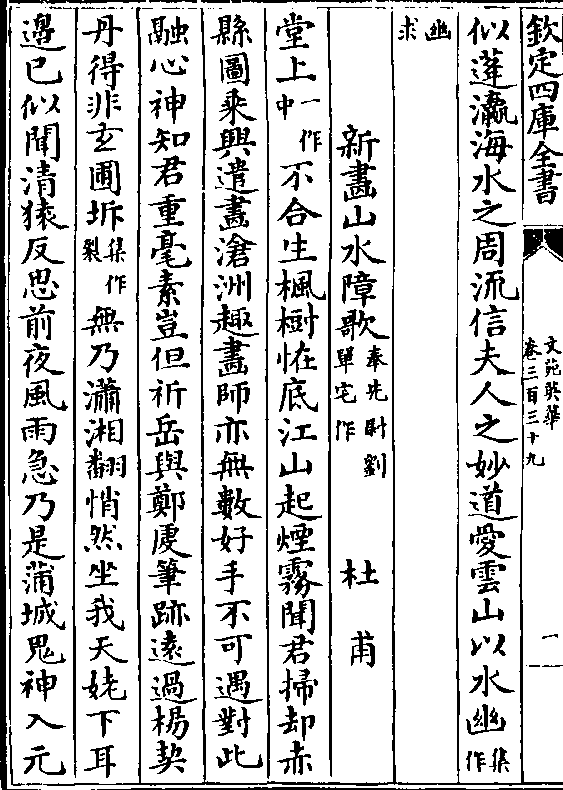 欽定四庫全書
文苑英華
卷三百三十九
一
似蓬瀛海水之周流信夫人之妙道愛雲山以水幽集作
幽求
新畫山水障歌奉先尉劉單宅作 杜甫
堂上一作中不合生楓樹恠底江山起煙霧聞君掃却赤
縣圖乘興遣畫滄洲趣畫師亦無數好手不可遇對此
融心神知君重毫素豈但祈岳與鄭䖍筆跡遠過楊契
丹得非玄圃坼集作裂無乃瀟湘翻悄然坐我天姥下耳
邊已似聞清猿反思前夜風雨急乃是蒲城鬼神入元